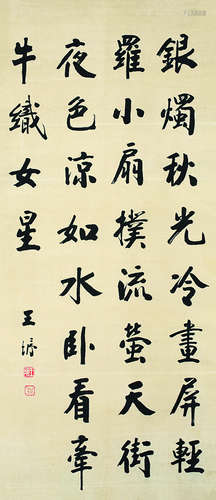 銀燭秋光冷畫屏輕
羅小扇撲流螢天街
夜色涼如水卧看牽
牛織女星